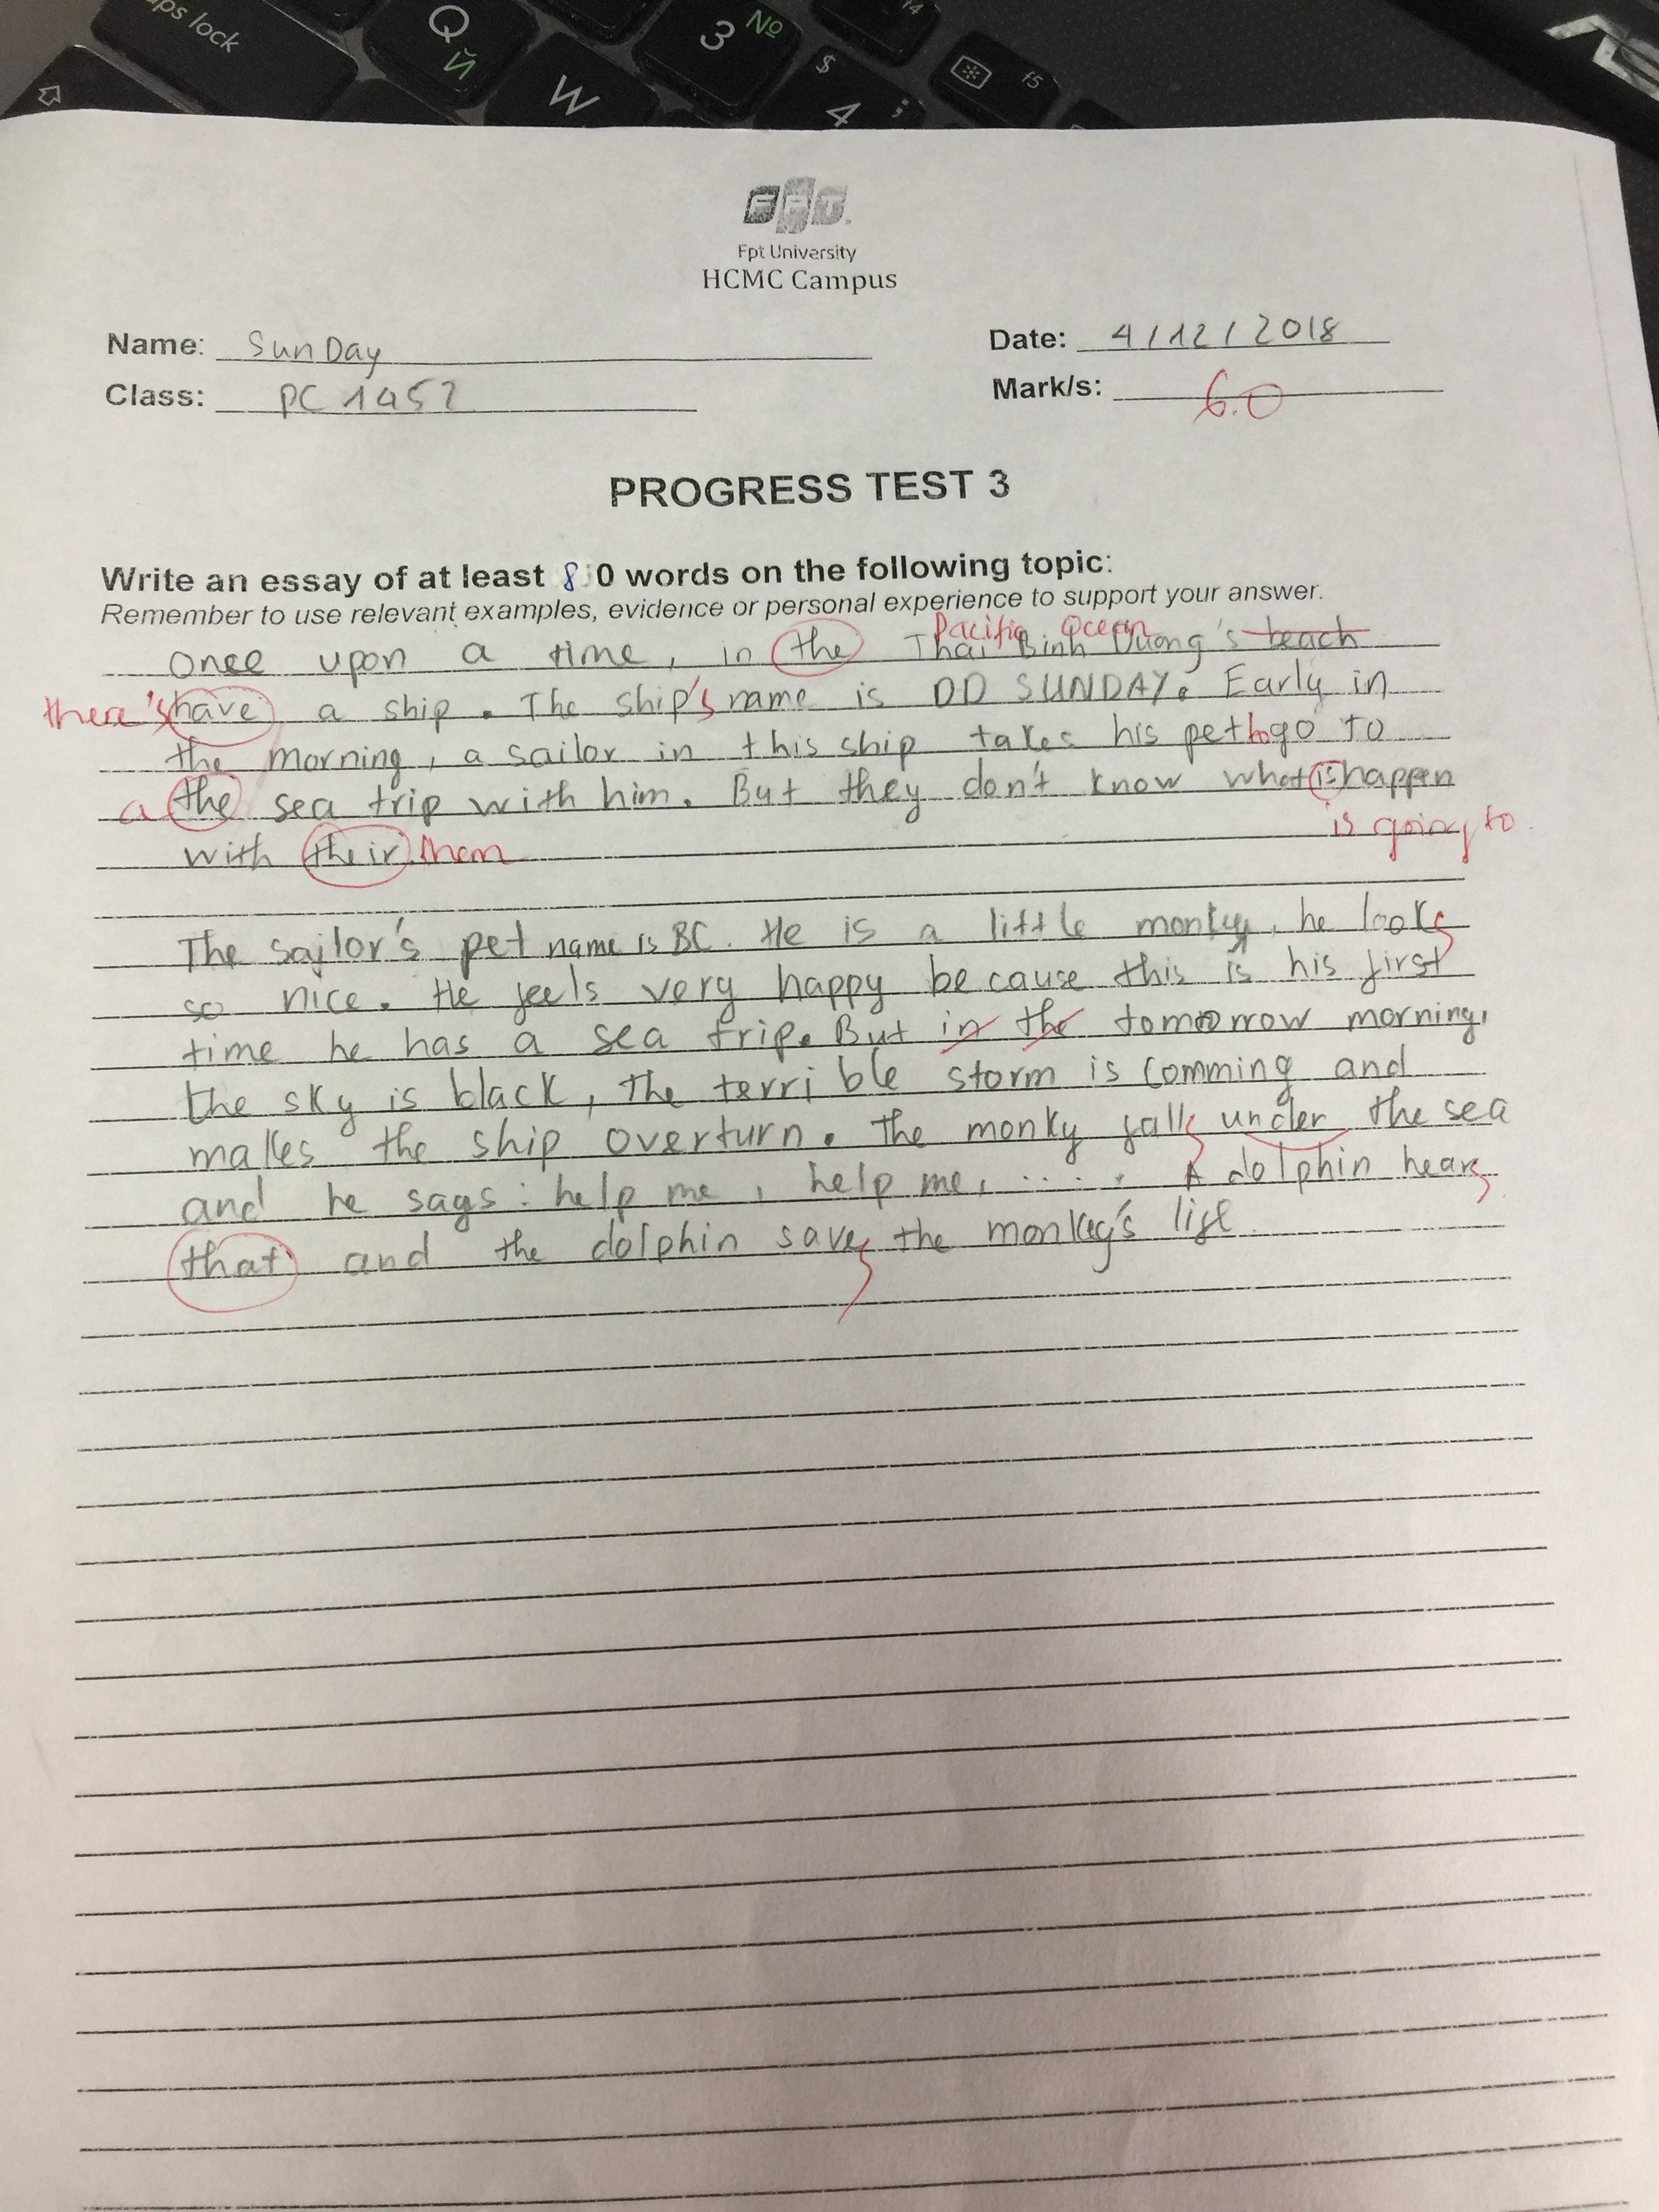 ps lock
Q
Й
W
3 №
$
4 ;
f4
f5
FPT.
Fpt University
HCMC Campus
Name: SunDay
Date: 4/12/2018
Class: PC 1452
Mark/s: 6.0
PROGRESS TEST 3
Write an essay of at least 80 words on the following topic:
Remember to use relevant examples, evidence or personal experience to support your answer.
Pacific Ocean
Once upon a time, in the Thai Binh Duong's beach
there's have a ship. The ship's name is DD SUNDAY. Early in
the morning, a sailor in this ship takes his pet to go to
a the sea trip with him. But they don't know what is happen
is going to
with their them
The sailor's pet name is BC. He is a little monky, he looks
so nice. He feels very happy because this is his first
time he has a sea trip. But in the tomorrow morning,
the sky is black, The terrible storm is comming and
makes the ship overturn. The monky falls under the sea
and he says: help me, help me, .... A dolphin hears
that and the dolphin saves the monkey's life